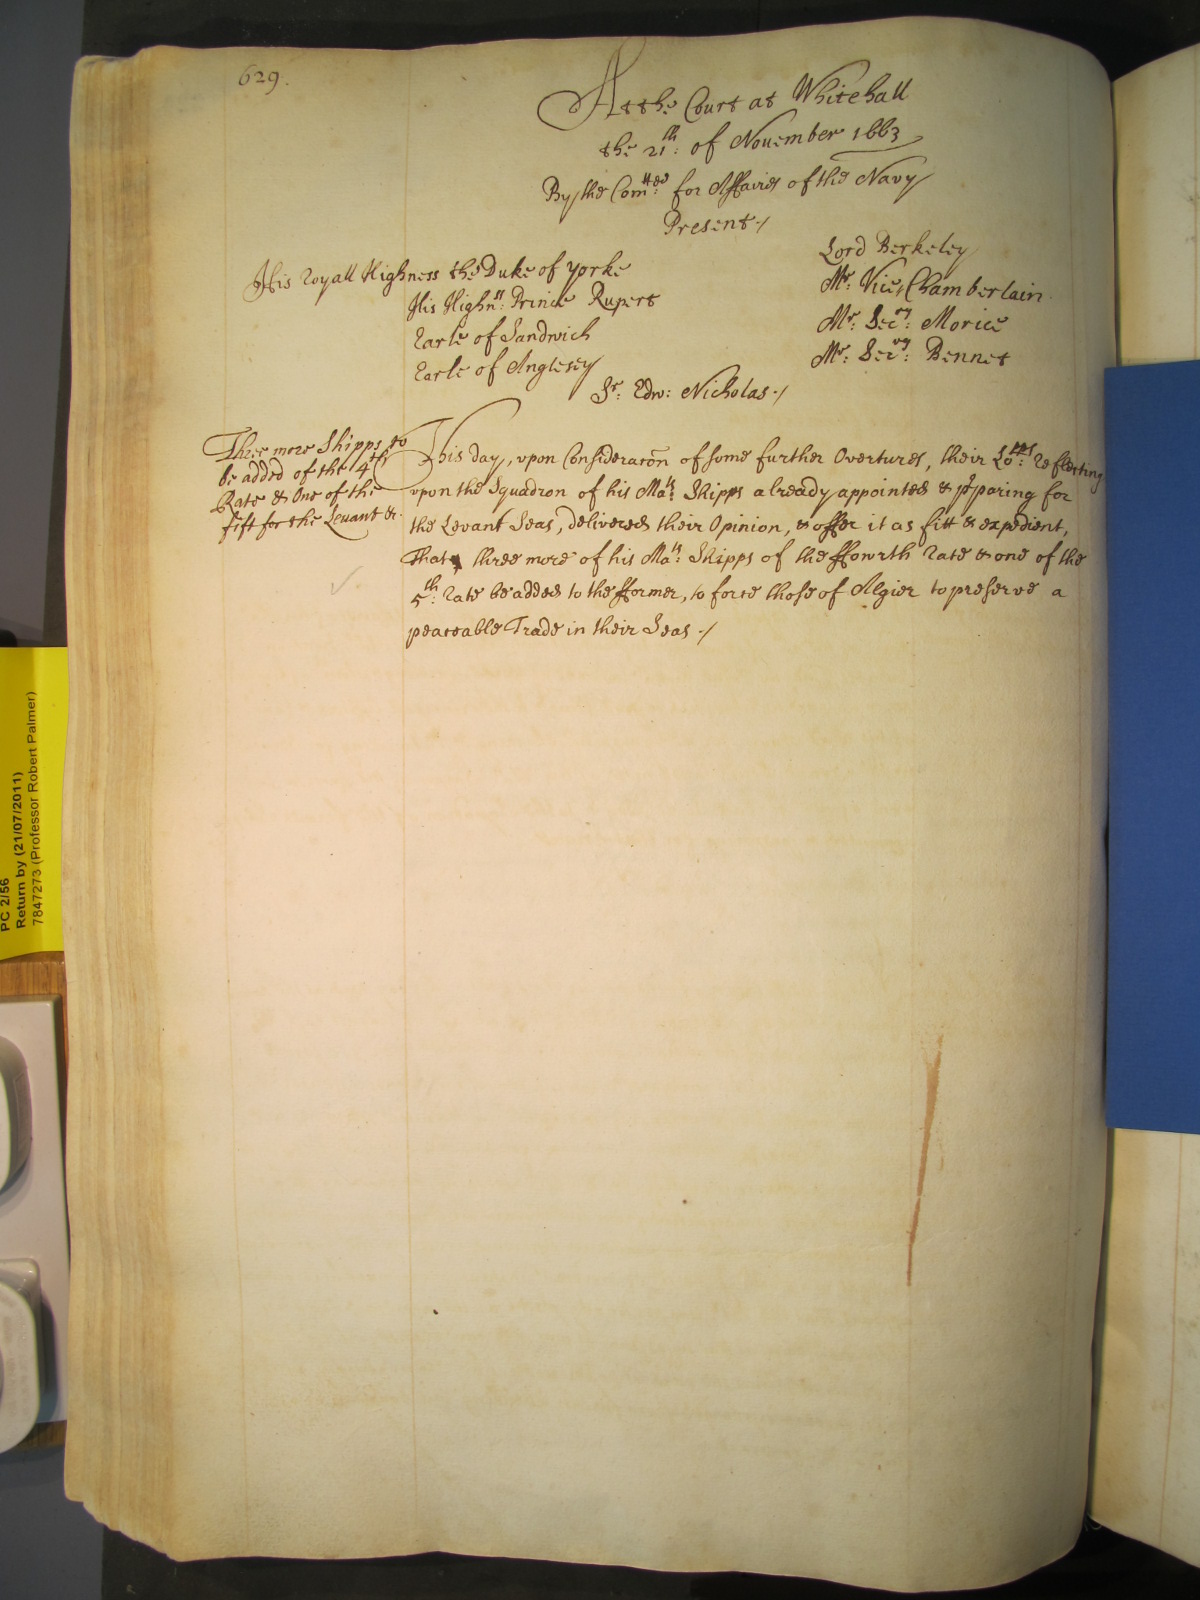 629.
At the Court at Whitehall
the 21th: of Nouember 1663
By the Comttee: for Affaires of the Navy
Present./
His Royall Highness the Duke of Yorke
His Highns: Prince Rupert
Earle of Sandwich
Earle of Anglesey
Lord Berkeley
Mr. Vice Chamberlain
Mr: Secry: Morice
Mr: Secry: Bennet
Sr: Edw: Nicholas./
Three more Shipps to
be added of the 4th
Rate & One of the
fift for the Leuant &c.
This day, vpon Consideracon of some further Overtures, their Lopps: Reflecting
vpon the Squadron of his Mats: Shipps already appointed & pparing for
the Levant Seas, delivered their Opinion, & offer it as fitt & expedient,
That three more of his Mats: Shipps of the ffowrth Rate & one of the
5th: Rate be added to the fformer, to force those of Algier to preserve a
peaceable Trade in their Seas./
PC 2/56
Return by (21/07/2011)
7847273 (Professor Robert Palmer)